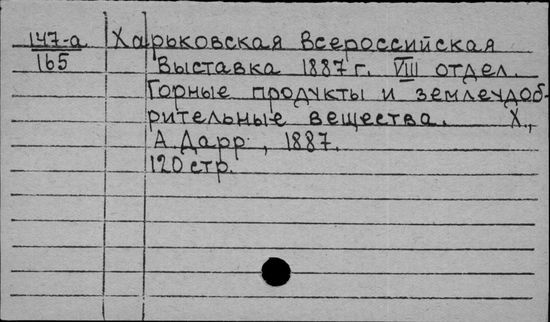 147-а Харьковская Всероссийская
165 Выставка 1887 г. VIII отдел.
Горные продукты и землеудоб-
рительные вещества. Х.,
А. Дарр, 1887.
120 стр.